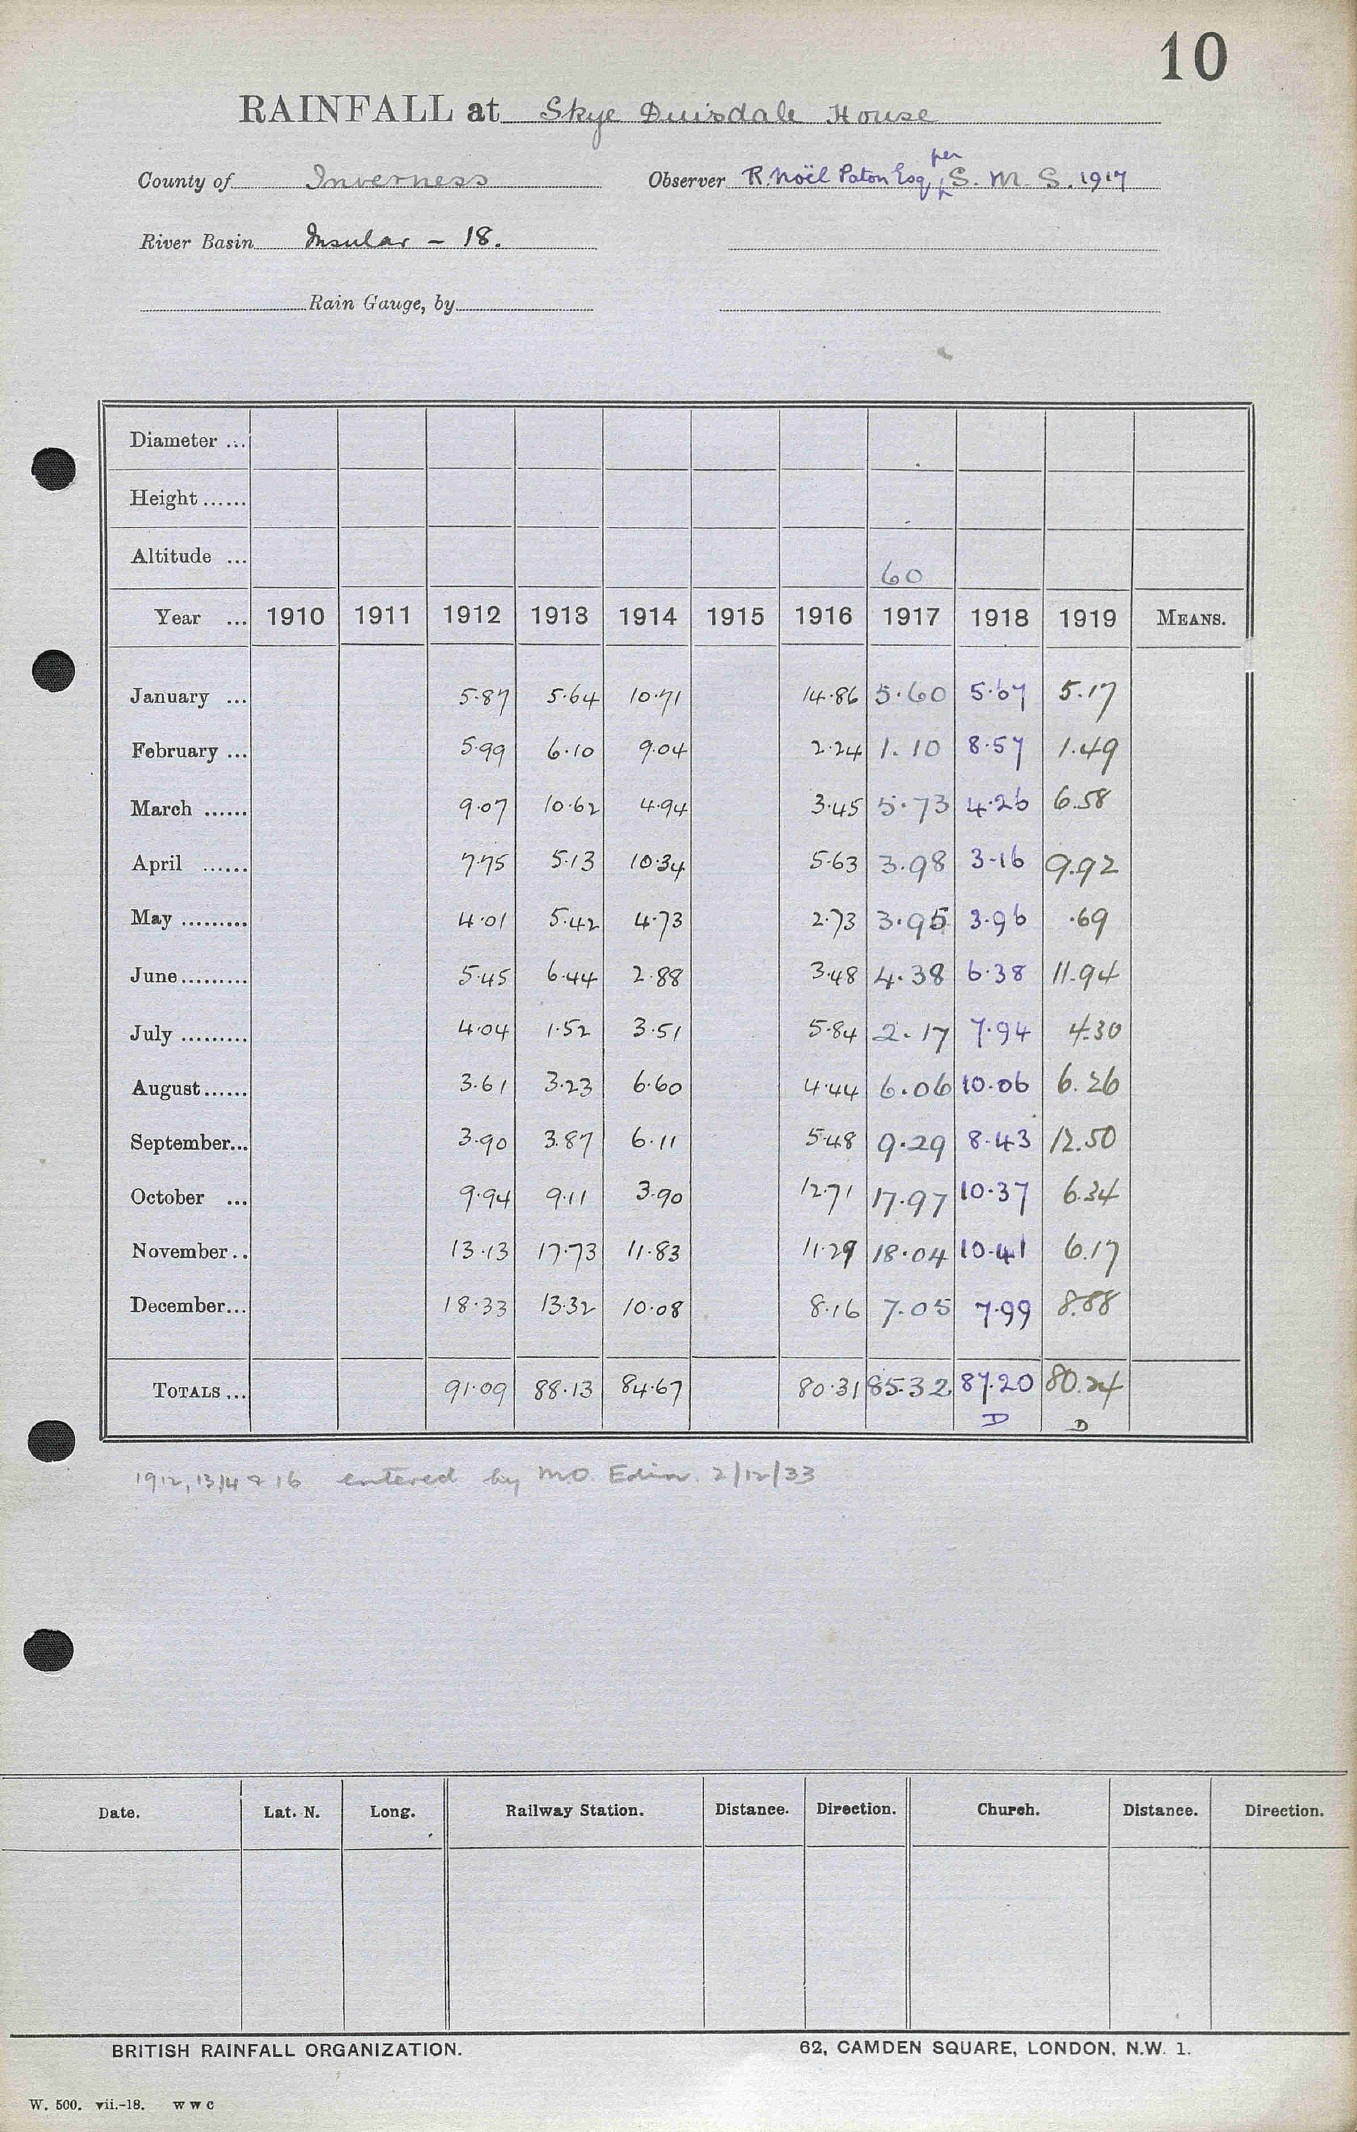 10
RAINFALL at Skye Duisdale House
County of Inverness Observer R. Noël Paton Esq per S. M. S. 1917
River Basin Insular - 18.
Rain Gauge, by
Diameter ...
Height ......
Altitude ... 60
Year ... 1910 1911 1912 1913 1914 1915 1916 1917 1918 1919 MEANS.
January ... 5.87 5.64 10.71 14.86 5.60 5.67 5.17
February ... 5.99 6.10 9.04 2.24 1.10 8.57 1.49
March ...... 9.07 10.62 4.94 3.45 5.73 4.26 6.58
April ...... 7.75 5.13 10.34 5.63 3.98 3.16 9.92
May ......... 4.01 5.42 4.73 2.73 3.95 3.96 .69
June ......... 5.45 6.44 2.88 3.48 4.38 6.38 11.94
July ......... 4.04 1.52 3.51 5.84 2.17 7.94 4.30
August ...... 3.61 3.23 6.60 4.44 6.06 10.06 6.26
September... 3.90 3.87 6.11 5.48 9.29 8.43 12.50
October ... 9.94 9.11 3.90 12.71 17.97 10.37 6.34
November .. 13.13 17.73 11.83 11.29 18.04 10.41 6.17
December... 18.33 13.32 10.08 8.16 7.05 7.99 8.88
TOTALS ... 91.09 88.13 84.67 80.31 85.32 87.20 80.24
D D
1912, 13, 14 & 16 entered by M.O. Edin. 2/12/33
Date. Lat. N. Long. Railway Station. Distance. Direction. Church. Distance. Direction.
BRITISH RAINFALL ORGANIZATION. 62, CAMDEN SQUARE, LONDON, N.W. 1.
W. 500. vii.-18. W W C